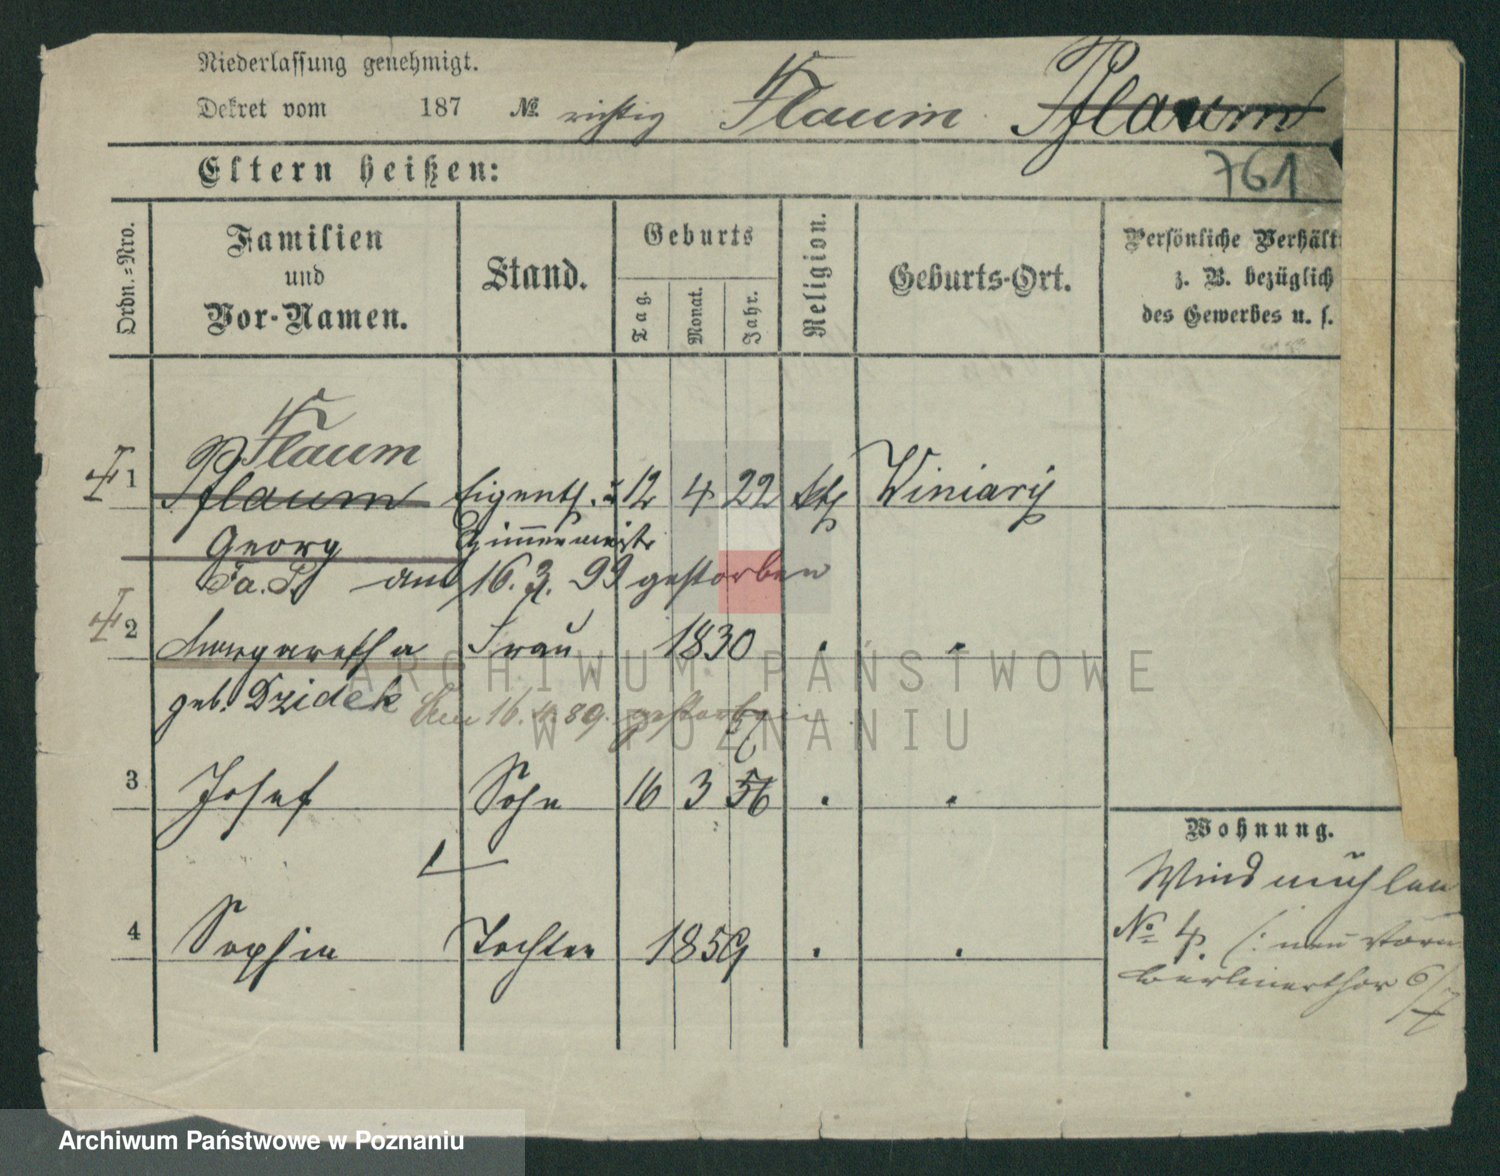 Niederlassung genehmigt.
Dekret vom 187 № richtig Flaum Pflaum
761
Eltern heißen:
Ordn.-Nro.
Familien und Vor-Namen.
Stand.
Geburts
Tag. Monat. Jahr.
Religion.
Geburts-Ort.
Persönliche Verhält
z. B. bezüglich
des Gewerbes u. s.
Flaum
1 Pflaum Eigenth. 12 4 22 kth Winiary
Georg Zimmermeister
am 16. 3. 99 gestorben
2 Margaretha Frau 1830 . .
geb. Dzidek Am 16.4.89. gestorben
3 Josef Sohn 16 3 56 . .
4 Sophie Tochter 1859 . .
Wohnung.
Windmühlen
№ 4 (: neu vorm
Berlinerthor 6/7
ARCHIWUM PAŃSTWOWE
W POZNANIU
Archiwum Państwowe w Poznaniu